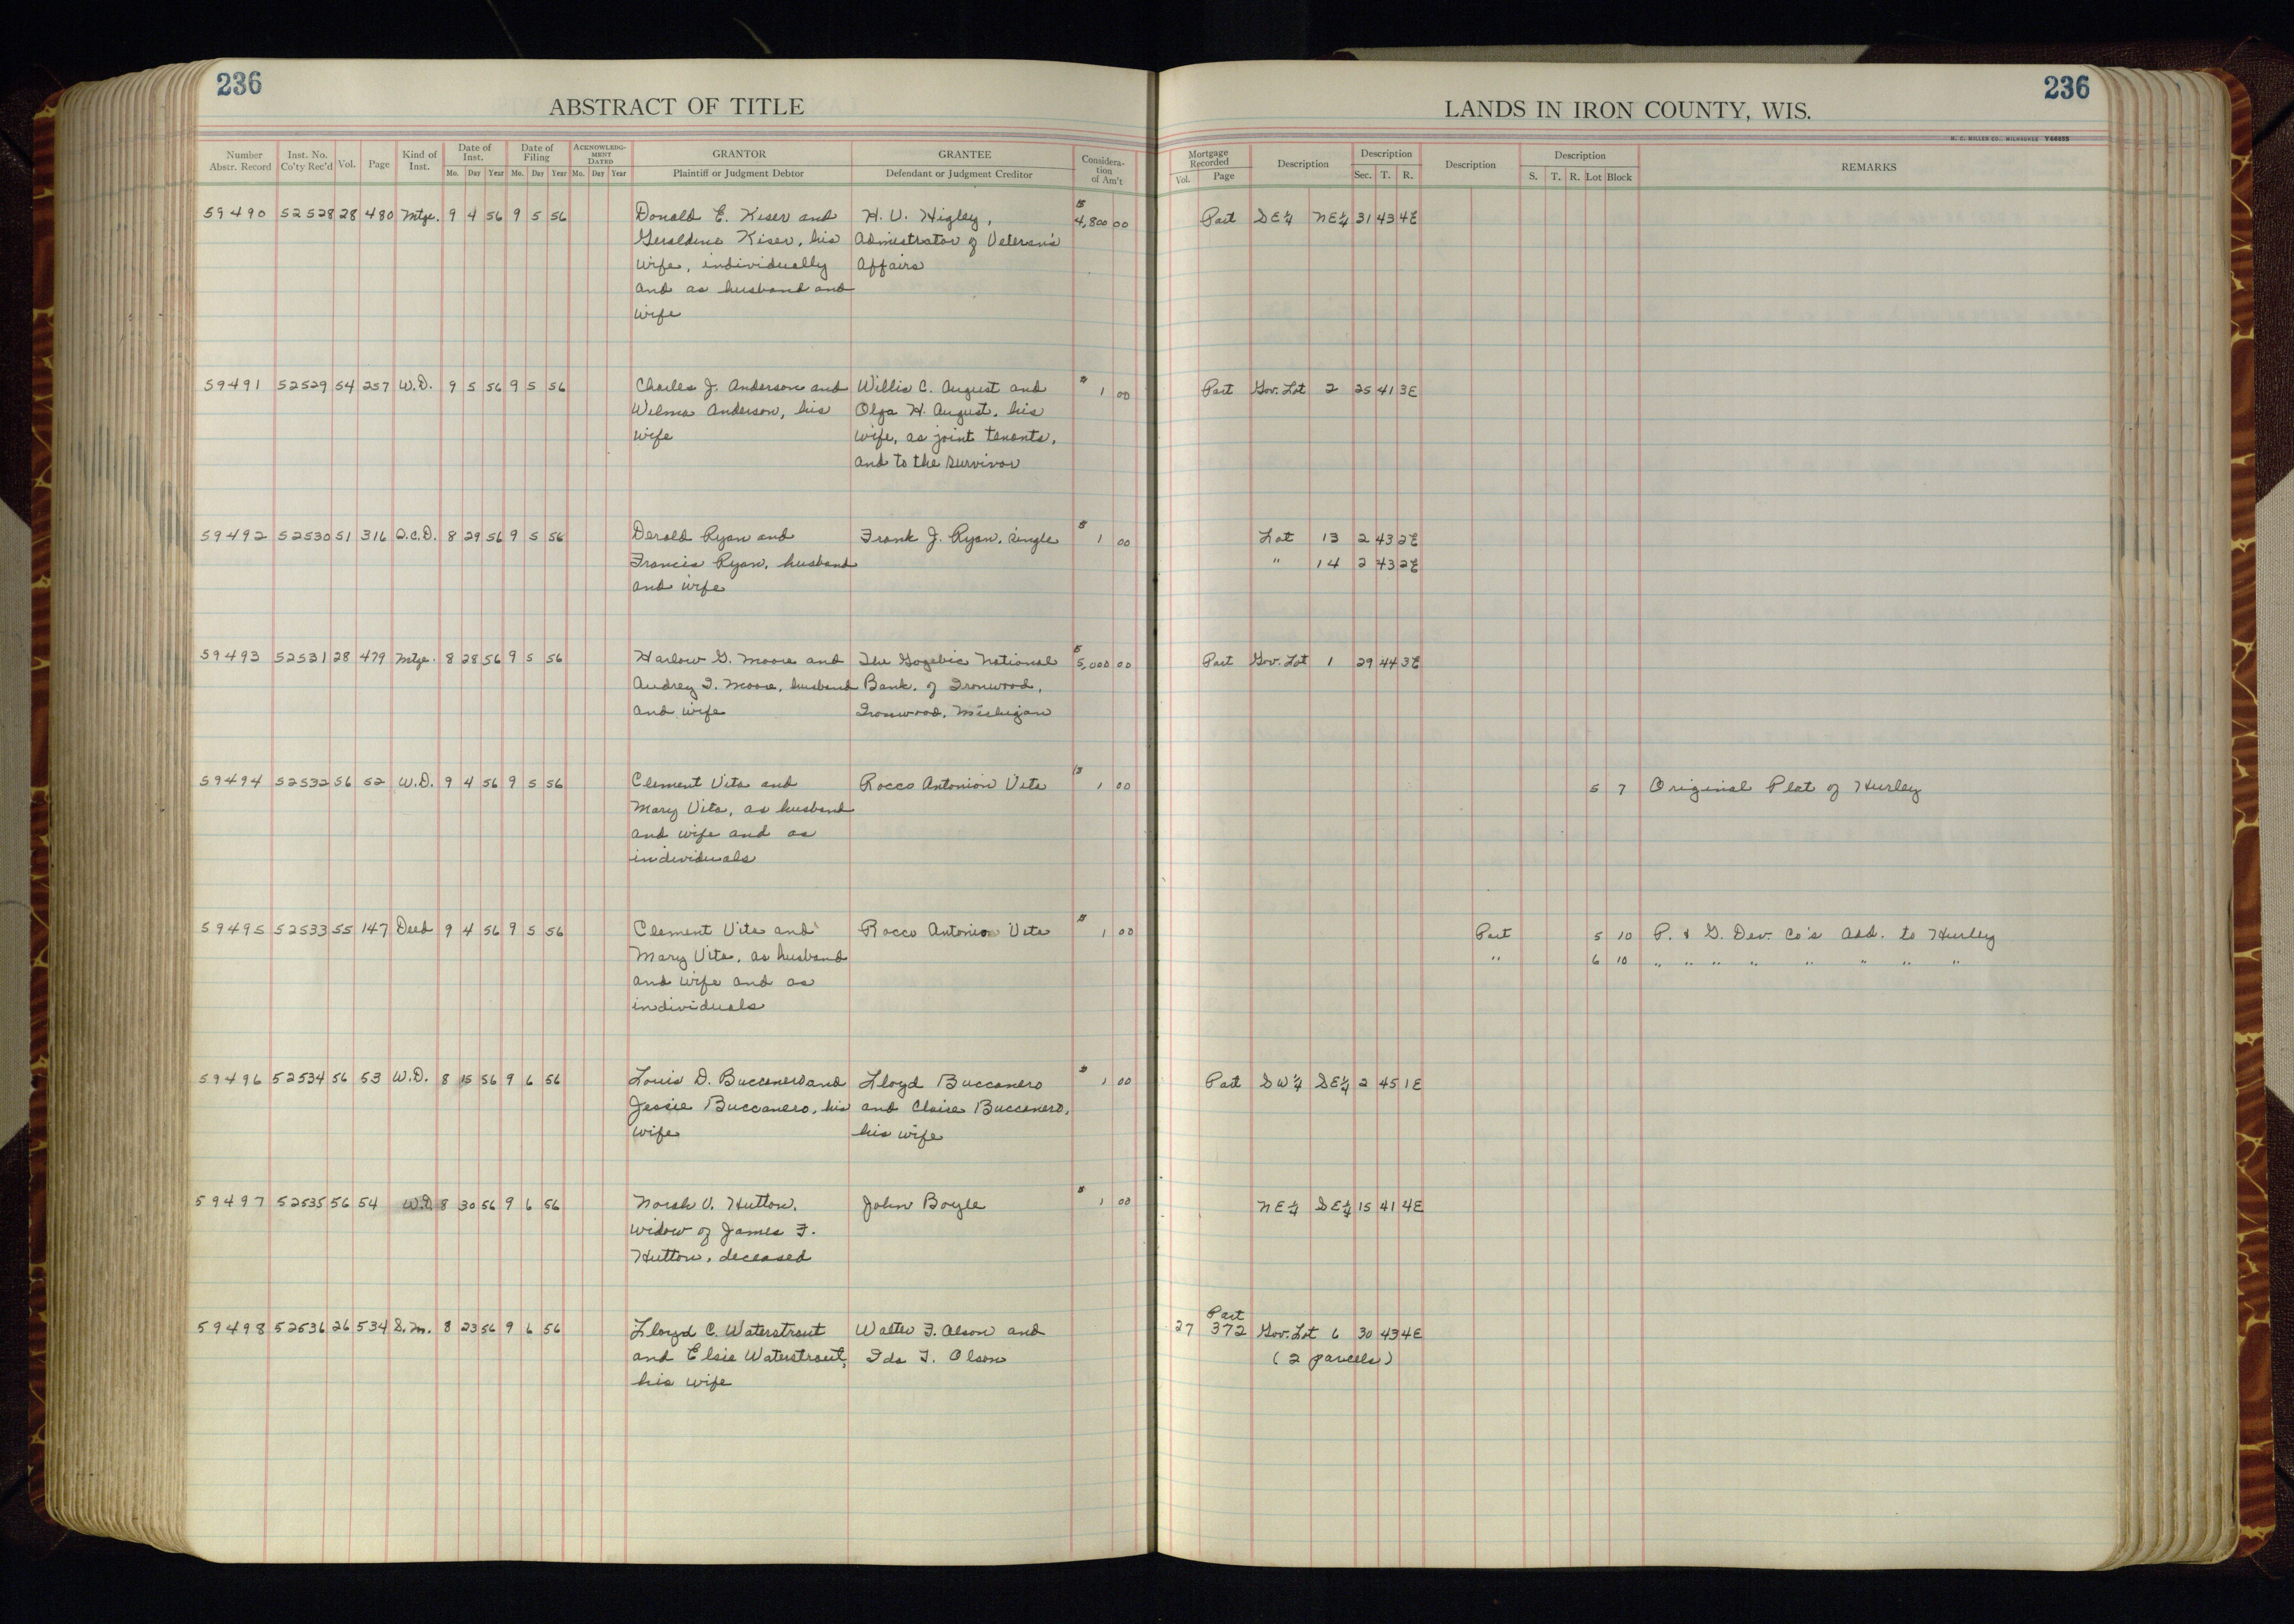 236
ABSTRACT OF TITLE
Number Abstr. Record | Inst. No. Co'ty Rec'd | Vol. | Page | Kind of Inst. | Date of Inst. Mo. Day Year | Date of Filing Mo. Day Year | ACKNOWLEDG-MENT DATED Mo. Day Year | GRANTOR Plaintiff or Judgment Debtor | GRANTEE Defendant or Judgment Creditor | Considera-tion of Am't
59490 52528 28 480 Mtge. 9 4 56 9 5 56 Donald E. Kiser and H. V. Higley, $ 4,800 00
Geraldine Kiser, his Admistrator of Veteran's
wife, individually Affairs
and as husband and
wife
59491 52529 54 257 W.D. 9 5 56 9 5 56 Charles J. Anderson and Willis C. August and $ 1 00
Wilma Anderson, his Olga H. August, his
wife wife, as joint tenants,
and to the survivor
59492 52530 51 316 Q.C.D. 8 29 56 9 5 56 Derald Ryan and Frank J. Ryan, single $ 1 00
Francis Ryan, husband
and wife
59493 52531 28 479 Mtge. 8 28 56 9 5 56 Harlow G. Moore and The Gogebic National $ 5,000 00
Audrey I. Moore, husband Bank, of Ironwood,
and wife Ironwood, Michigan
59494 52532 56 52 W.D. 9 4 56 9 5 56 Clement Vita and Rocco Antonion Vita $ 1 00
Mary Vita, as husband
and wife and as
individuals
59495 52533 55 147 Deed 9 4 56 9 5 56 Clement Vita and Rocco Antonio Vita $ 1 00
Mary Vita, as husband
and wife and as
individuals
59496 52534 56 53 W.D. 8 15 56 9 6 56 Louis D. Buccanero and Lloyd Buccanero $ 1 00
Jessie Buccanero, his and Claire Buccanero,
wife his wife
59497 52535 56 54 W.D. 8 30 56 9 6 56 Norah V. Hutton, John Boyle $ 1 00
widow of James F.
Hutton, deceased
59498 52536 26 534 S.M. 8 23 56 9 6 56 Lloyd C. Waterstraut Walter F. Olson and
and Elsie Waterstraut, Ida I. Olson
his wife
236
LANDS IN IRON COUNTY, WIS.
H. C. MILLER CO., MILWAUKEE Y66855
Mortgage Recorded Vol. Page | Description | Description Sec. T. R. | Description | Description S. T. R. Lot Block | REMARKS
Part SE¼ NE¼ 31 43 4E
Part Gov. Lot 2 25 41 3E
Lot 13 2 43 2E
" 14 2 43 2E
Part Gov. Lot 1 29 44 3E
5 7 Original Plat of Hurley
Part 5 10 P. & G. Dev. Co's Add. to Hurley
" 6 10 " " " " " " " "
Part SW¼ SE¼ 2 45 1E
NE¼ SE¼ 15 41 4E
Part
27 372 Gov. Lot 6 30 43 4E
(2 parcels)